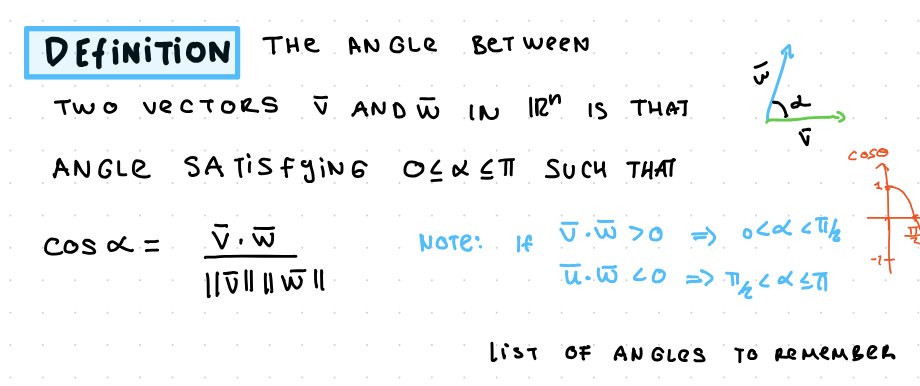 DEFINITION THE ANGLE BETWEEN
TWO VECTORS v̄ AND w̄ IN ℝⁿ IS THAT
ANGLE SATISFYING 0≤α≤π SUCH THAT
cos α = v̄ · w̄ / ||v̄|| ||w̄||
NOTE: If v̄ · w̄ >0 ⇒ 0<α<π/2
ū · w̄ <0 ⇒ π/2<α≤π
w̄
α
v̄
cosθ
1
π/2
-1
LIST OF ANGLES TO REMEMBER